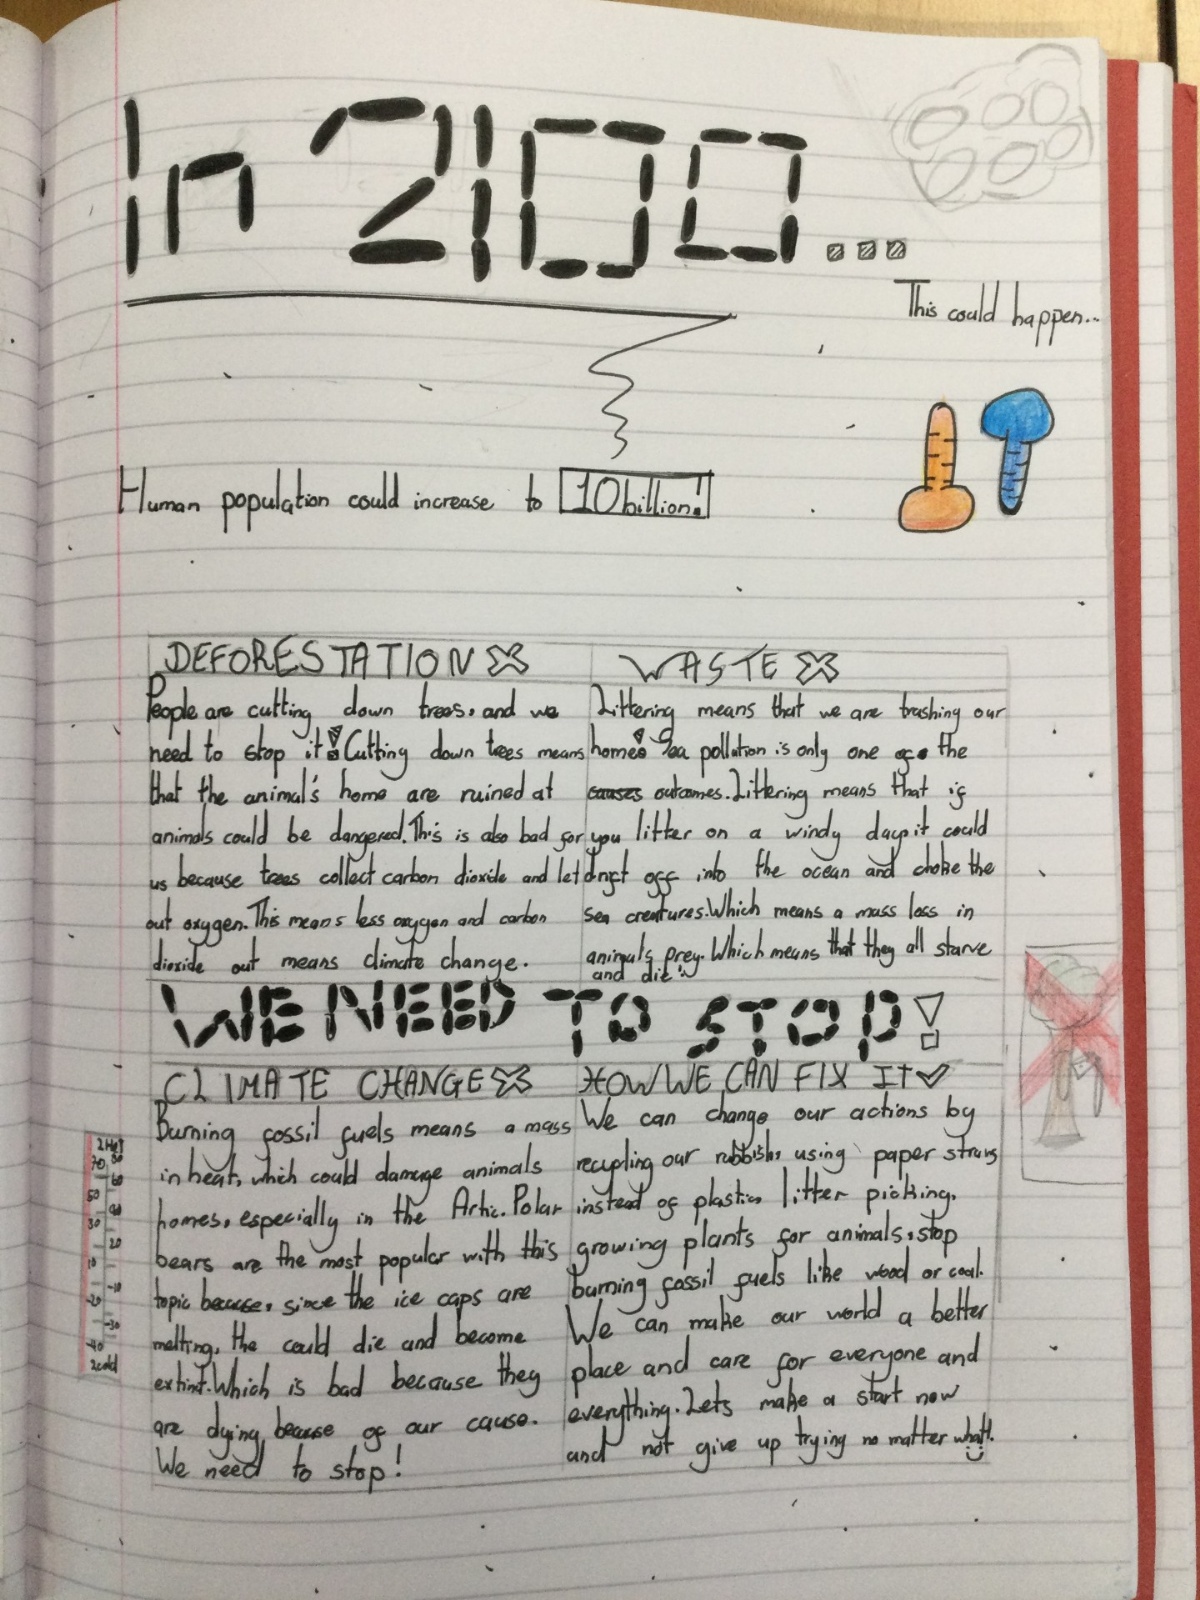 In 2100...
This could happen..
Human population could increase to 10 billion!
DEFORESTATION
People are cutting down trees, and we
need to stop it! Cutting down trees means
that the animal's home are ruined at
animals could be dangered. This is also bad for
us because trees collect carbon dioxide and let
out oxygen. This means less oxygen and carbon
dioxide out means climate change.
WASTE
Littering means that we are trashing our
home! Sea pollution is only one of the
causes outcomes. Littering means that if
you litter on a windy day, it could
drift off into the ocean and choke the
sea creatures. Which means a mass loss in
animals prey. Which means that they all starve
and die!
WE NEED TO STOP!
CLIMATE CHANGE
Burning fossil fuels means a mass
in heat, which could damage animals
homes, especially in the Artic. Polar
bears are the most popular with this
topic because, since the ice caps are
melting, the could die and become
extinct. Which is bad because they
are dying because of our cause.
We need to stop!
HOW WE CAN FIX IT
We can change our actions by
recycling our rubbish, using paper straws
instead of plastic, litter picking,
growing plants for animals, stop
burning fossil fuels like wood or coal.
We can make our world a better
place and care for everyone and
everything. Lets make a start now
and not give up trying no matter what!
2Hot
70 80
50 60
30 40
10 20
-10
-20
-30
-40
2cold